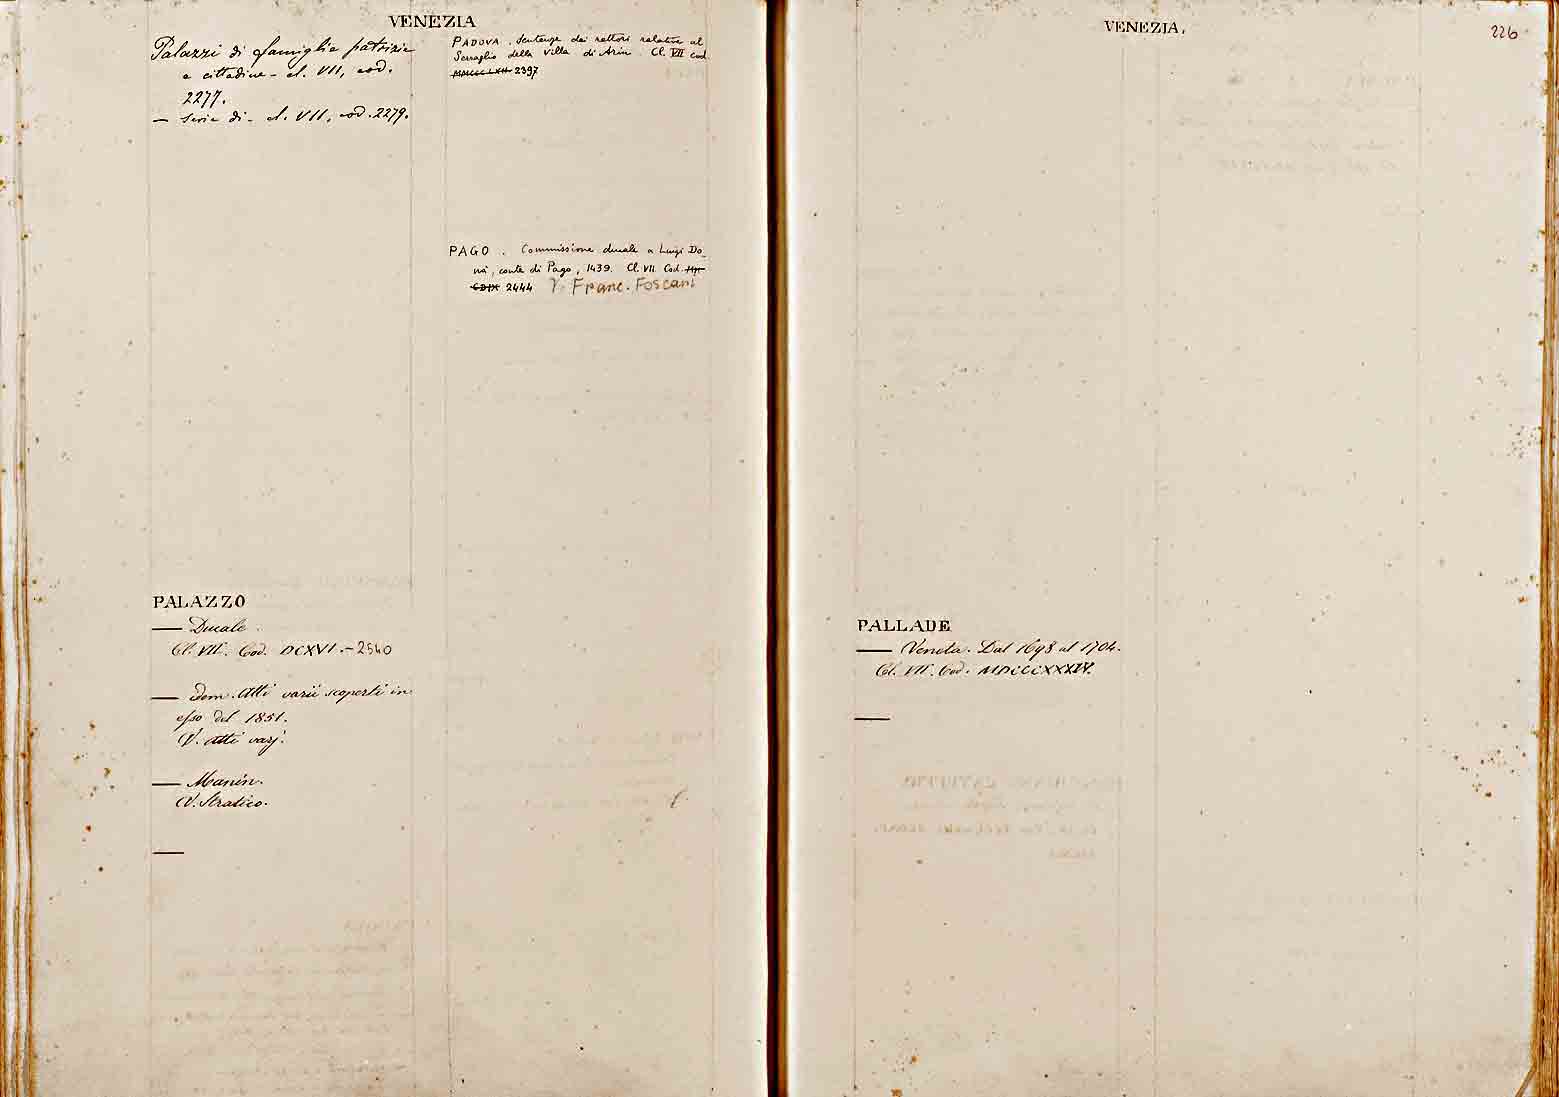 VENEZIA
Palazzi di famiglie patrizie
e cittadine - cl. VII, cod.
2277.
— Serie di - cl. VII, cod. 2279.
PALAZZO
— Ducale.
Cl. VII. Cod. DCXVI. - 2540
— idem. Atti varii scoperti in
esso del 1851.
V. Atti varj.
— Manin.
V. Stratico.
—
PADOVA. Sentenze dei rettori relative al
Serraglio della Villa di Arin. Cl. VII cod.
2397
PAGO. Commissione ducale a Luigi Do_
nà, conte di Pago, 1439. Cl. VII. Cod.
CDIX 2444 V. Franc. Foscari
VENEZIA.
226
PALLADE
— Veneta. Dal 1698 al 1704.
Cl. VII. Cod.
—